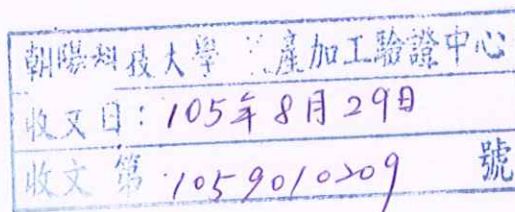 朝陽科技大學 產加工驗證中心
收文日：105年8月29日
收文 第 1059010209 號